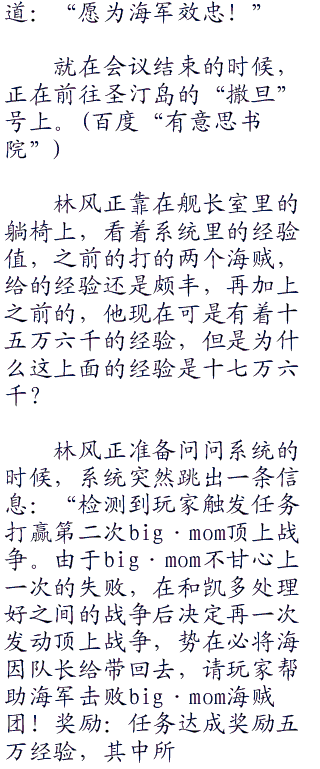 道：“愿为海军效忠！”
就在会议结束的时候，
正在前往圣汀岛的“撒旦”
号上。(百度“有意思书
院”)
林风正靠在舰长室里的
躺椅上，看着系统里的经验
值，之前的打的两个海贼，
给的经验还是颇丰，再加上
之前的，他现在可是有着十
五万六千的经验，但是为什
么这上面的经验是十七万六
千？
林风正准备问问系统的
时候，系统突然跳出一条信
息：“检测到玩家触发任务
打赢第二次big·mom顶上战
争。由于big·mom不甘心上
一次的失败，在和凯多处理
好之间的战争后决定再一次
发动顶上战争，势在必将海
因队长给带回去，请玩家帮
助海军击败big·mom海贼
团！奖励：任务达成奖励五
万经验，其中所